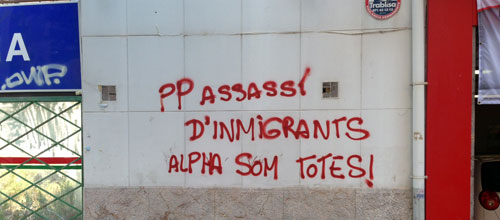 A
Trablisa
PP ASSASSÍ
D'INMIGRANTS
ALPHA SOM TOTES!